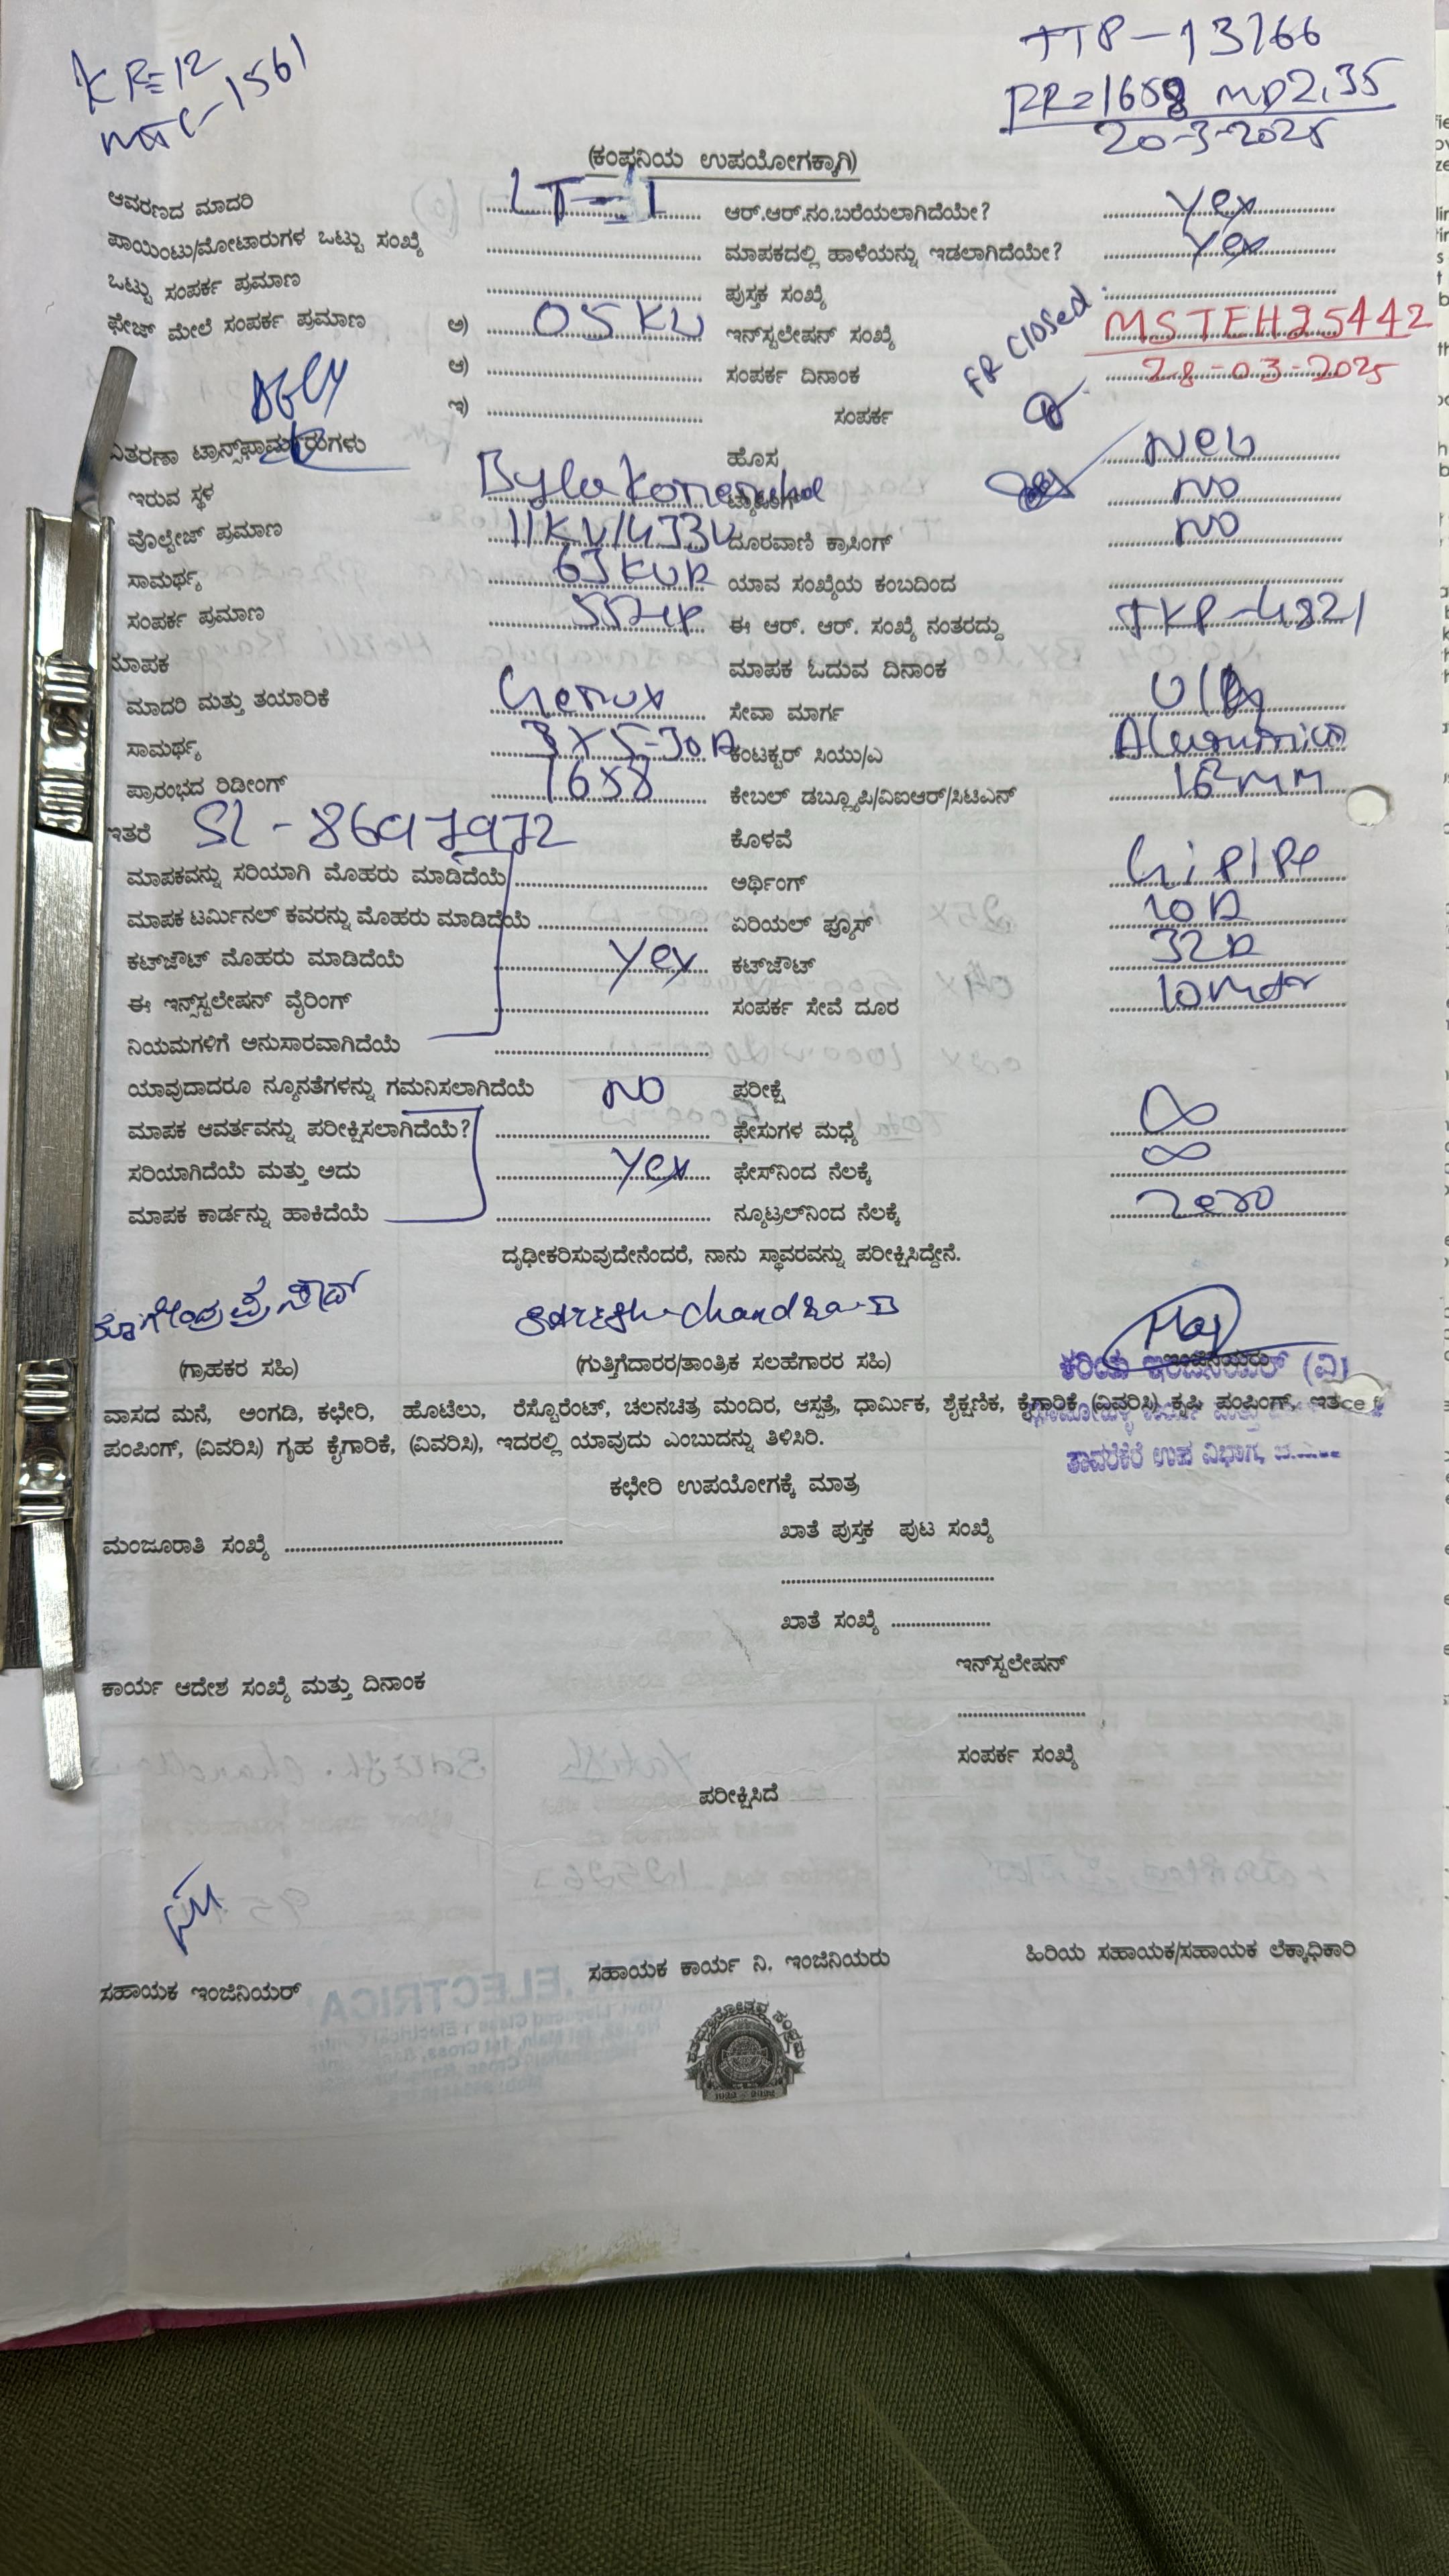 KR=12
TTP-13766
RR=1658 MD2.35
20-3-2025
(ಕಂಪನಿಯ ಉಪಯೋಗಕ್ಕಾಗಿ)
ಆವರಣದ ಮಾದರಿ LT-1 ಆರ್.ಆರ್.ನಂ.ಬರೆಯಲಾಗಿದೆಯೇ? yes
ಪಾಯಿಂಟು/ಮೋಟಾರುಗಳ ಒಟ್ಟು ಸಂಖ್ಯೆ ಮಾಪಕದಲ್ಲಿ ಹಾಳೆಯನ್ನು ಇಡಲಾಗಿದೆಯೇ? yes
ಒಟ್ಟು ಸಂಪರ್ಕ ಪ್ರಮಾಣ ಪುಸ್ತಕ ಸಂಖ್ಯೆ
ಫೇಜ್ ಮೇಲೆ ಸಂಪರ್ಕ ಪ್ರಮಾಣ ಅ) 05KW ಇನ್‌ಸ್ಟಲೇಷನ್ ಸಂಖ್ಯೆ FR closed MSTEH25442
ಆ) ಸಂಪರ್ಕ ದಿನಾಂಕ 28-03-2025
ಇ) ಸಂಪರ್ಕ
ವಿತರಣಾ ಟ್ರಾನ್ಸ್‌ಫಾರ್ಮರುಗಳು ಹೊಸ New
ಇರುವ ಸ್ಥಳ NO
ವೊಲ್ಟೇಜ್ ಪ್ರಮಾಣ 11KV/433V ದೂರವಾಣಿ ಕ್ರಾಸಿಂಗ್ NO
ಸಾಮರ್ಥ್ಯ 63KVA ಯಾವ ಸಂಖ್ಯೆಯ ಕಂಬದಿಂದ
ಸಂಪರ್ಕ ಪ್ರಮಾಣ ಈ ಆರ್. ಆರ್. ಸಂಖ್ಯೆ ನಂತರದ್ದು TKP-4821
ಮಾಪಕ ಮಾಪಕ ಓದುವ ದಿನಾಂಕ
ಮಾದರಿ ಮತ್ತು ತಯಾರಿಕೆ Genux ಸೇವಾ ಮಾರ್ಗ
ಸಾಮರ್ಥ್ಯ 3X5-30A ಕಂಟಕ್ಟರ್ ಸಿಯು/ಎ
ಪ್ರಾರಂಭದ ರಿಡೀಂಗ್ 1658 ಕೇಬಲ್ ಡಬ್ಲ್ಯೂಪಿ/ವಿಐಆರ್/ಸಿಟಿಎಸ್ 16mm
ಇತರೆ SL-8697972 ಕೊಳವೆ
ಮಾಪಕವನ್ನು ಸರಿಯಾಗಿ ಮೊಹರು ಮಾಡಿದೆಯೆ ಅರ್ಥಿಂಗ್ Gi PIPe
ಮಾಪಕ ಟರ್ಮಿನಲ್ ಕವರನ್ನು ಮೊಹರು ಮಾಡಿದೆಯೆ ಏರಿಯಲ್ ಫ್ಯೂಸ್ 10A
ಕಟ್‌ಜೌಟ್ ಮೊಹರು ಮಾಡಿದೆಯೆ yes ಕಟ್‌ಜೌಟ್ 32A
ಈ ಇನ್‌ಸ್ಟಲೇಷನ್ ವೈರಿಂಗ್ ಸಂಪರ್ಕ ಸೇವೆ ದೂರ
ನಿಯಮಗಳಿಗೆ ಅನುಸಾರವಾಗಿದೆಯೆ
ಯಾವುದಾದರೂ ನ್ಯೂನತೆಗಳನ್ನು ಗಮನಿಸಲಾಗಿದೆಯೆ NO ಪರೀಕ್ಷೆ
ಮಾಪಕ ಆವರ್ತವನ್ನು ಪರೀಕ್ಷಿಸಲಾಗಿದೆಯೆ? ಫೇಸುಗಳ ಮಧ್ಯೆ ∞
ಸರಿಯಾಗಿದೆಯೆ ಮತ್ತು ಅದು yes ಫೇಸ್‌ನಿಂದ ನೆಲಕ್ಕೆ ∞
ಮಾಪಕ ಕಾರ್ಡನ್ನು ಹಾಕಿದೆಯೆ ನ್ಯೂಟ್ರಲ್‌ನಿಂದ ನೆಲಕ್ಕೆ zero
ದೃಢೀಕರಿಸುವುದೇನೆಂದರೆ, ನಾನು ಸ್ಥಾವರವನ್ನು ಪರೀಕ್ಷಿಸಿದ್ದೇನೆ.
(ಗ್ರಾಹಕರ ಸಹಿ) (ಗುತ್ತಿಗೆದಾರರ/ತಾಂತ್ರಿಕ ಸಲಹೆಗಾರರ ಸಹಿ)
ವಾಸದ ಮನೆ, ಅಂಗಡಿ, ಕಛೇರಿ, ಹೊಟೆಲು, ರೆಸ್ಟೊರೆಂಟ್, ಚಲನಚಿತ್ರ ಮಂದಿರ, ಆಸ್ಪತ್ರೆ, ಧಾರ್ಮಿಕ, ಶೈಕ್ಷಣಿಕ, ಕೈಗಾರಿಕೆ (ವಿವರಿಸಿ) ಕೃಷಿ ಪಂಪಿಂಗ್,
ಪಂಪಿಂಗ್, (ವಿವರಿಸಿ) ಗೃಹ ಕೈಗಾರಿಕೆ, (ವಿವರಿಸಿ), ಇದರಲ್ಲಿ ಯಾವುದು ಎಂಬುದನ್ನು ತಿಳಿಸಿರಿ.
ತಾವರೆಕೆರೆ ಉಪ ವಿಭಾಗ,
ಕಛೇರಿ ಉಪಯೋಗಕ್ಕೆ ಮಾತ್ರ
ಮಂಜೂರಾತಿ ಸಂಖ್ಯೆ ಖಾತೆ ಪುಸ್ತಕ ಪುಟ ಸಂಖ್ಯೆ
ಖಾತೆ ಸಂಖ್ಯೆ
ಇನ್‌ಸ್ಟಲೇಷನ್
ಕಾರ್ಯ ಆದೇಶ ಸಂಖ್ಯೆ ಮತ್ತು ದಿನಾಂಕ
ಸಂಪರ್ಕ ಸಂಖ್ಯೆ
ಪರೀಕ್ಷಿಸಿದೆ
ಸಹಾಯಕ ಇಂಜಿನಿಯರ್ ಸಹಾಯಕ ಕಾರ್ಯ ನಿ. ಇಂಜಿನಿಯರು ಹಿರಿಯ ಸಹಾಯಕ/ಸಹಾಯಕ ಲೆಕ್ಕಾಧಿಕಾರಿ